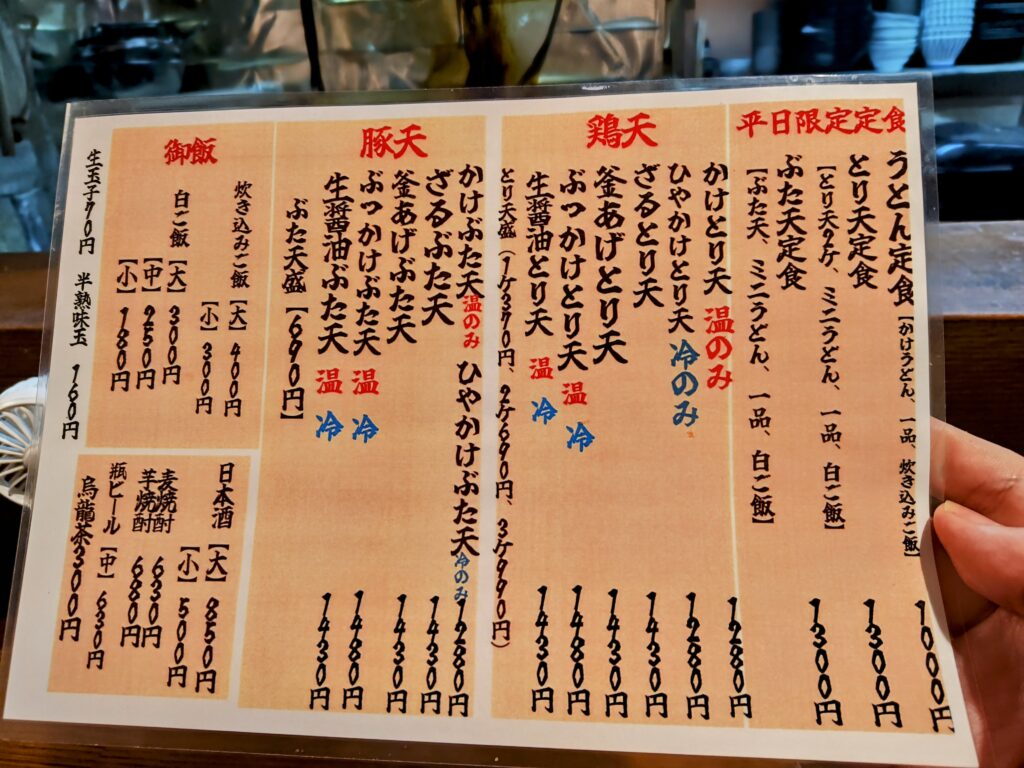 平日限定定食
うどん定食【かけうどん、一品、炊き込みご飯】 1000円
とり天定食 1300円
【とり天2ケ、ミニうどん、一品、白ご飯】
ぶた天定食 1300円
【ぶた天、ミニうどん、一品、白ご飯】
鶏天
かけとり天 温のみ 1280円
ひやかけとり天 冷のみ 1280円
ざるとり天 1430円
釜あげとり天 1430円
ぶっかけとり天 温 冷 1480円
生醤油とり天 温 冷 1430円
とり天盛(1ケ370円、2ケ690円、3ケ990円)
豚天
かけぶた天温のみ ひやかけぶた天冷のみ 1280円
ざるぶた天 1430円
釜あげぶた天 1430円
ぶっかけぶた天 温 冷 1480円
生醤油ぶた天 温 冷 1430円
ぶた天盛【690円】
御飯
炊き込みご飯【大】400円
【小】300円
白ご飯【大】300円
【中】250円
【小】180円
日本酒【大】850円
【小】500円
麦焼酎 630円
芋焼酎 680円
瓶ビール【中】630円
烏龍茶300円
生玉子70円 半熟味玉 160円